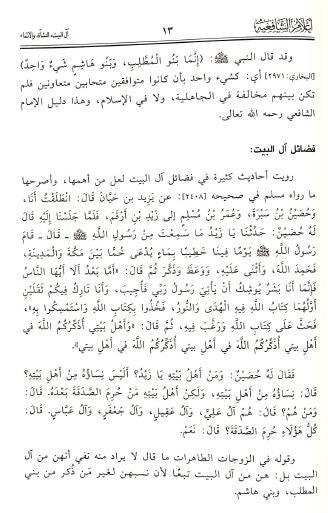 أعلام الشافعية
١٣
آل البيت، النشأة والانتماء
وقد قال النبي ﷺ: (إِنَّمَا بَنُو الْمُطَّلِبِ، وَبَنُو هَاشِمٍ شَيْءٌ وَاحِدٌ)
[البخاري: ٢٩٧١] أي: كشيء واحد بأن كانوا متوافقين متحابين متعاونين فلم
تكن بينهم مخالفة في الجاهلية، ولا في الإسلام، وهذا دليل الإمام
الشافعي رحمه الله تعالى.
فضائل آل البيت:
رويت أحاديث كثيرة في فضائل آل البيت لعل من أهمها، وأصرحها
ما رواه مسلم في صحيحه [٢٤٠٨] عن: يَزِيدَ بْنِ حَيَّانَ قَالَ: انْطَلَقْتُ أَنَا،
وَحُصَيْنُ بْنُ سَبْرَةَ، وَعُمَرُ بْنُ مُسْلِمٍ إِلَى زَيْدِ بْنِ أَرْقَمَ، فَلَمَّا جَلَسْنَا إِلَيْهِ قَالَ
لَهُ حُصَيْنٌ: حَدِّثْنَا يَا زَيْدُ مَا سَمِعْتَ مِنْ رَسُولِ اللَّهِ ﷺ - قَالَ - قَامَ
رَسُولُ اللَّهِ ﷺ يَوْمًا فِينَا خَطِيبًا بِمَاءٍ يُدْعَى خُمًّا بَيْنَ مَكَّةَ وَالْمَدِينَةِ،
فَحَمِدَ اللَّهَ، وَأَثْنَى عَلَيْهِ، وَوَعَظَ وَذَكَّرَ ثُمَّ قَالَ: «أَمَّا بَعْدُ أَلَا أَيُّهَا النَّاسُ
فَإِنَّمَا أَنَا بَشَرٌ يُوشِكُ أَنْ يَأْتِيَ رَسُولُ رَبِّي فَأُجِيبَ، وَأَنَا تَارِكٌ فِيكُمْ ثَقَلَيْنِ
أَوَّلُهُمَا كِتَابُ اللَّهِ فِيهِ الْهُدَى وَالنُّورُ، فَخُذُوا بِكِتَابِ اللَّهِ وَاسْتَمْسِكُوا بِهِ»،
فَحَثَّ عَلَى كِتَابِ اللَّهِ وَرَغَّبَ فِيهِ، ثُمَّ قَالَ: «وَأَهْلُ بَيْتِي أُذَكِّرُكُمُ اللَّهَ فِي
أَهْلِ بَيْتِي أُذَكِّرُكُمُ اللَّهَ فِي أَهْلِ بَيْتِي أُذَكِّرُكُمُ اللَّهَ فِي أَهْلِ بيتي».
فَقَالَ لَهُ حُصَيْنٌ: وَمَنْ أَهْلُ بَيْتِهِ يَا زَيْدُ؟ أَلَيْسَ نِسَاؤُهُ مِنْ أَهْلِ بَيْتِهِ؟
قَالَ: نِسَاؤُهُ مِنْ أَهْلِ بَيْتِهِ، وَلَكِنْ أَهْلُ بَيْتِهِ مَنْ حُرِمَ الصَّدَقَةَ بَعْدَهُ. قَالَ:
وَمَنْ هُمْ؟ قَالَ: هُمْ آلُ عَلِيٍّ، وَآلُ عَقِيلٍ، وَآلُ جَعْفَرٍ، وَآلُ عَبَّاسٍ. قَالَ:
كُلُّ هَؤُلَاءِ حُرِمَ الصَّدَقَةَ؟ قَالَ: نَعَمْ.
وقوله في الزوجات الطاهرات ما قال لا يراد منه نفي أنهن من آل
البيت بل: هن من آل البيت تبعًا لأن نسبهن لغير مَن ذُكر من بني
المطلب، وبني هاشم.